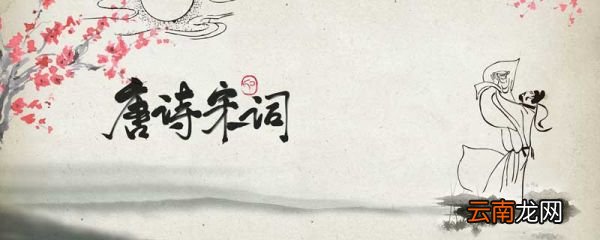 唐诗宋词
云南龙网